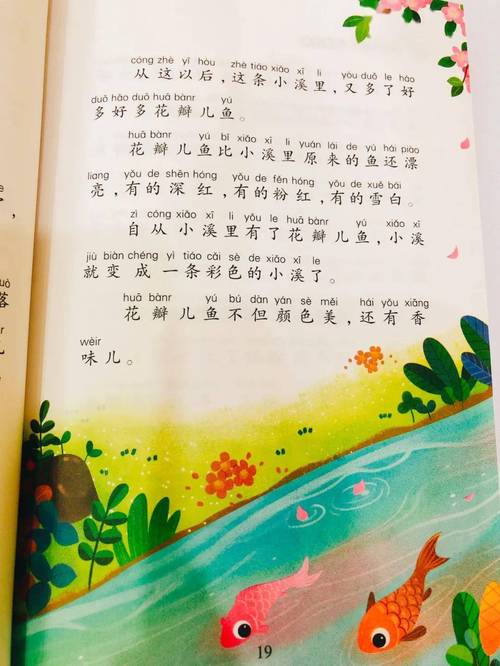 cóng zhè yǐ hòu zhè tiáo xiǎo xī li yòu duō le hǎo
从这以后，这条小溪里，又多了好
duō hǎo duō huā bànr yú
多好多花瓣儿鱼。
huā bànr yú bǐ xiǎo xī li yuán lái de yú hái piào
花瓣儿鱼比小溪里原来的鱼还漂
liang yǒu de shēn hóng yǒu de fěn hóng yǒu de xuě bái
亮，有的深红，有的粉红，有的雪白。
zì cóng xiǎo xī li yǒu le huā bànr yú xiǎo xī
自从小溪里有了花瓣儿鱼，小溪
jiù biàn chéng yì tiáo cǎi sè de xiǎo xī le
就变成一条彩色的小溪了。
huā bànr yú bú dàn yán sè měi hái yǒu xiāng
花瓣儿鱼不但颜色美，还有香
wèir
味儿。
落
儿
19